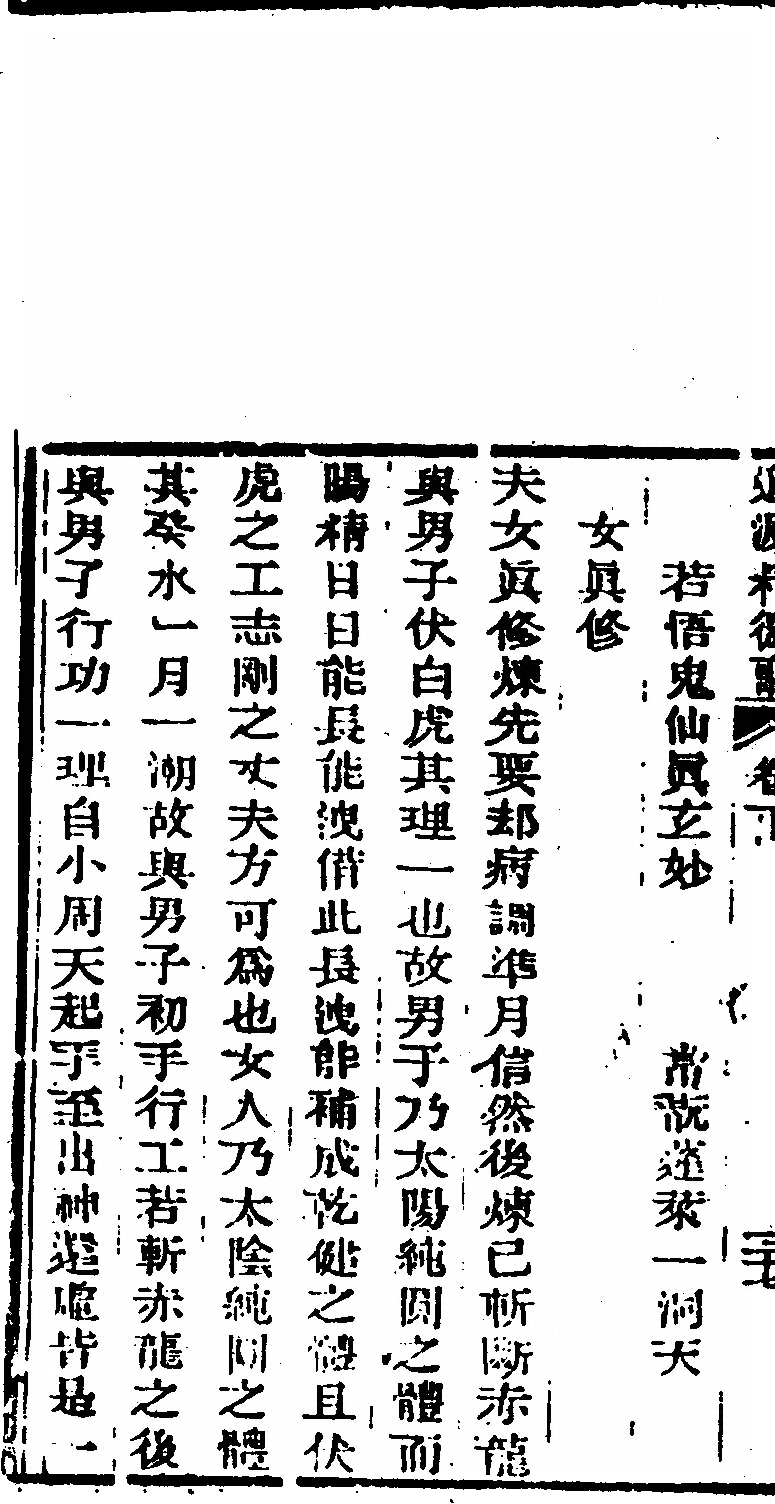 卷下
若悟鬼仙眞玄妙 常翫蓬萊一洞天
女眞修
夫女眞修煉先要却病調準月信然後煉已斬斷赤龍
與男子伏白虎其理一也故男子乃太陽純圓之體而
陽精日日能長能洩借此長洩能補成乾健之體且伏
虎之工志剛之丈夫方可爲也女人乃太陰純圓之體
其癸水一月一潮故與男子初手行工若斬赤龍之後
與男子行功一理自小周天起手至出神還虛皆是一